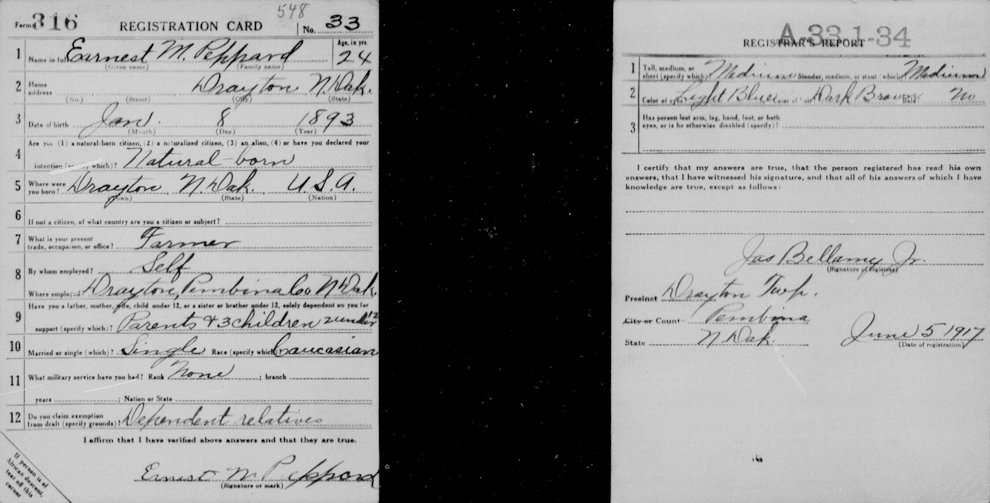 548
Form 1 316 REGISTRATION CARD No. 33
1 Name in full Earnest M. Peppard Age, in yrs. 24
(Given name) (Family name)
2 Home address Drayton N. Dak.
(No.) (Street) (City) (State)
3 Date of birth Jan. 8 1893
(Month) (Day) (Year)
Are you (1) a natural-born citizen, (2) a naturalized citizen, (3) an alien, (4) or have you declared your
4 intention (specify which)? Natural-born
5 Where were you born? Drayton, N Dak. U.S.A.
(Town) (State) (Nation)
6 If not a citizen, of what country are you a citizen or subject?
7 What is your present trade, occupation, or office? Farmer
8 By whom employed? Self
Where employed? Drayton, Pembina Co N Dak.
Have you a father, mother, wife, child under 12, or a sister or brother under 12, solely dependent on you for
9 support (specify which)? Parents & 3 children 2 under 12
10 Married or single (which)? Single Race (specify which)? Caucasian
11 What military service have you had? Rank None ; branch
years ; Nation or State
12 Do you claim exemption from draft (specify grounds)? Dependent relatives
I affirm that I have verified above answers and that they are true.
Ernest M. Peppard
(Signature or mark)
If person is of African descent, tear off this corner
A-33.1-34
REGISTRAR'S REPORT
1 Tall, medium, or short (specify which)? Medium Slender, medium, or stout (which)? Medium
2 Color of eyes? Light Blue Color of hair? Dark Brown Bald? No
3 Has person lost arm, leg, hand, foot, or both eyes, or is he otherwise disabled (specify)?
I certify that my answers are true, that the person registered has read his own
answers, that I have witnessed his signature, and that all of his answers of which I have
knowledge are true, except as follows:
Jas Bellamy Jr.
(Signature of registrar)
Precinct Drayton Twp.
City or County Pembina
State N Dak. June 5 1917
(Date of registration)